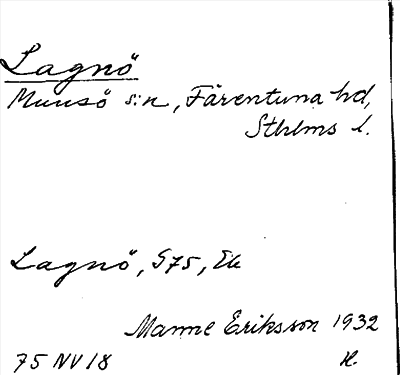 Lagnö
Munsö s:n, Färentuna hd,
Sthlms l.
Lagnö, S75, Ek
Manne Eriksson 1932
75 NV 18 H.